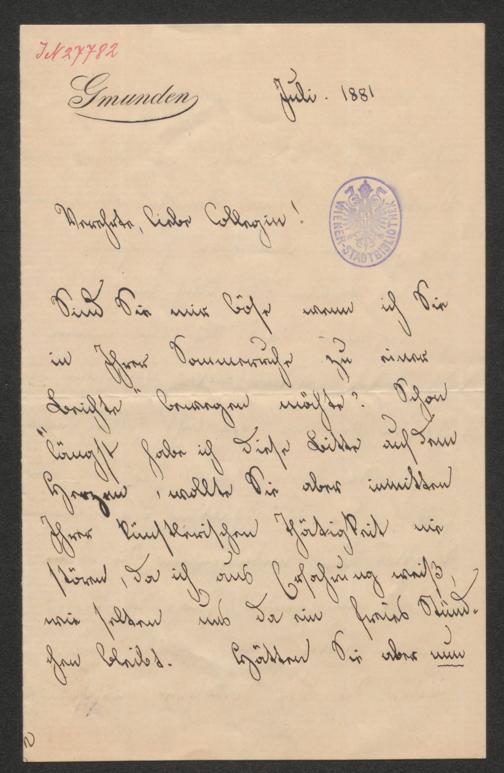 IN 27782
Gmunden
Juli. 1881
Verehrte, liebe Collegin!
WIENER-STADTBIBLIOTHEK
Sind Sie mir böse wenn ich Sie
in Ihrer Sommerruhe zu einer
"Beichte" bewegen möchte? Schon
längst habe ich diese Bitte auf dem
Herzen, wollte Sie aber inmitten
Ihrer künstlerischen Thätigkeit nie
stören, da ich aus Erfahrung weiß,
wie selten uns da ein freies Stünd-
chen bleibt. Hätten Sie aber nun